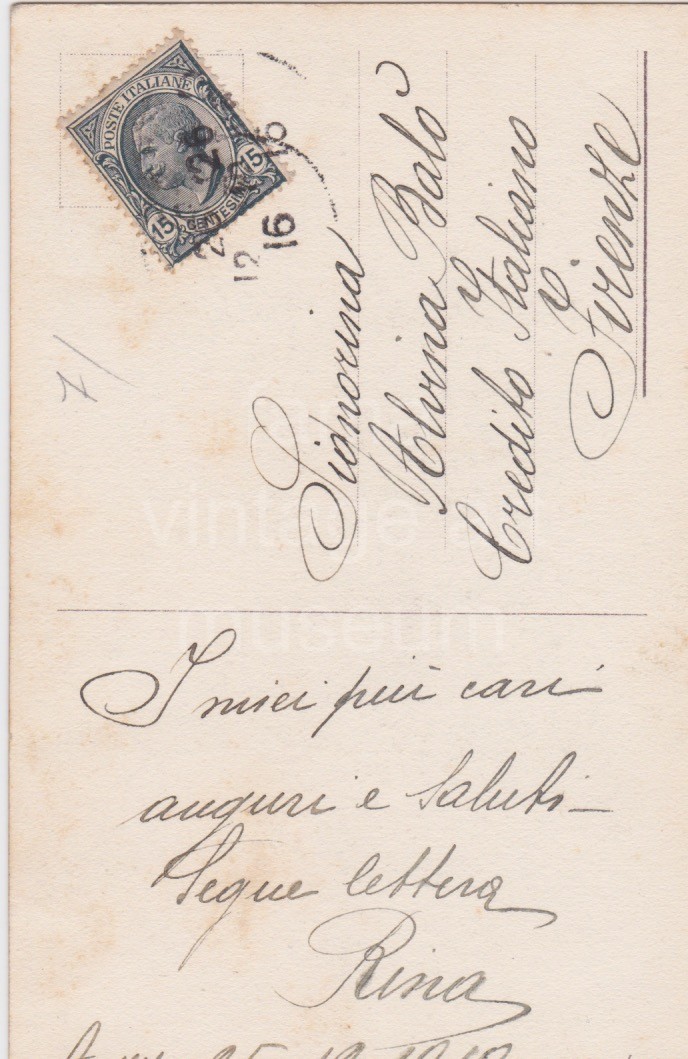 POSTE ITALIANE
15 CENTESIMI 15
26
12
16
Signorina
Alvina Balò
Credito Italiano
Firenze
7/
vintage
museum
I miei più cari
auguri e saluti -
Segue lettera
Rina